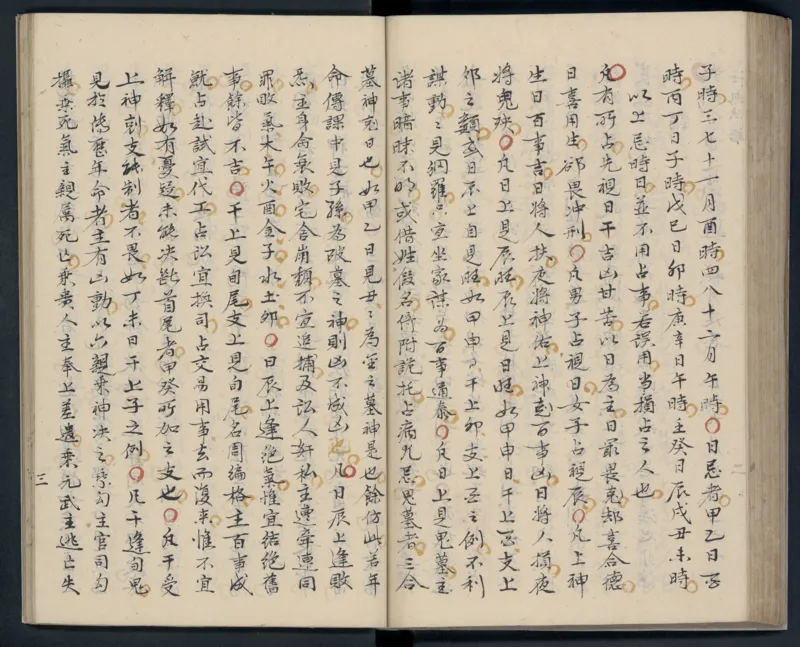 子時三七十一月酉時四八十二月午時○日忌者甲乙日
時丙丁日子時戊巳日卯時庚辛日午時壬癸日辰戌丑未時
以上忌時日並不用占事若誤用當損占之人也
凡有所占先視日干吉凶甘苦以日為主日最畏克却喜合德
日喜用生却畏冲刑○凡男子占視日女子占視辰○凡上神
生日百事吉日將人扶夜將神佑上神克百事凶日將人損夜
將鬼殃○凡日上見辰旺辰上見日旺如甲申日干上酉支上
卯之類或日辰上自是旺如甲申日干上卯支上酉之例不利
謀動二見網羅只宜坐家謀為百事通泰○凡日上見鬼墓主
諸事暗昧不明或借姓假名倚附託托占病尤忌鬼墓者三合
墓神剋日也如甲乙日見丑二為金之墓神是也餘仿此若年
命傳課中見子孫為破墓之神則凶不成凶也凡日辰上逢敗
炁主身命衰敗宅舍崩頹不宜追捕及訟人奸私主連牽連同
罪敗氣木午火酉金子水土卯○日辰上逢絕氣惟宜結絕舊
事餘皆不吉○干上見旬尾支上見旬尾名周遍格主百事成
就占赴試宜代工占訟宜換司占交易用事去而復來惟不宜
解釋如有憂疑未能決斷首尾者甲癸所加之支也○凡干受
上神剋支能制者不畏如丁未日干上子之例○凡干逢旬鬼
見於傳應年命者主有凶動以六親乘神決之乘勾主官司勾
攝乘死氣主親屬死亡乘貴人主奉上差遣乘元武主逃亡失
三
二